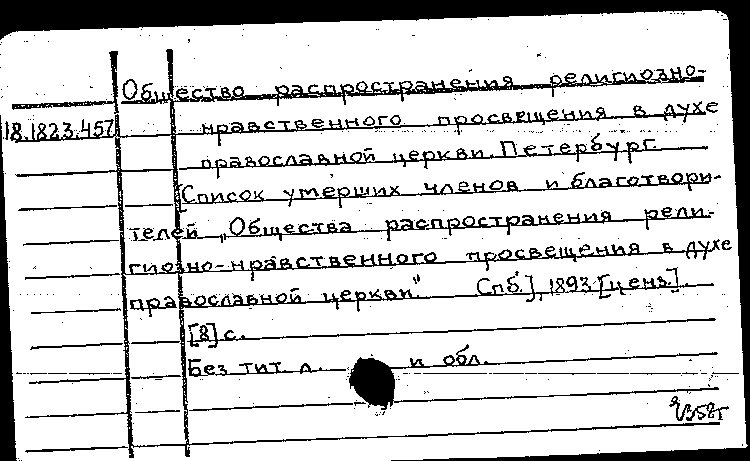 Общество распространения религиозно-
18.1823.457 нравственного просвещения в духе
православной церкви. Петербург
[Список умерших членов и благотвори-
телей „Общества распространения рели-
гиозно-нравственного просвещения в духе
православной церкви." Спб.], 1893 [ценз.].
[8] с.
Без тит. л. и обл.